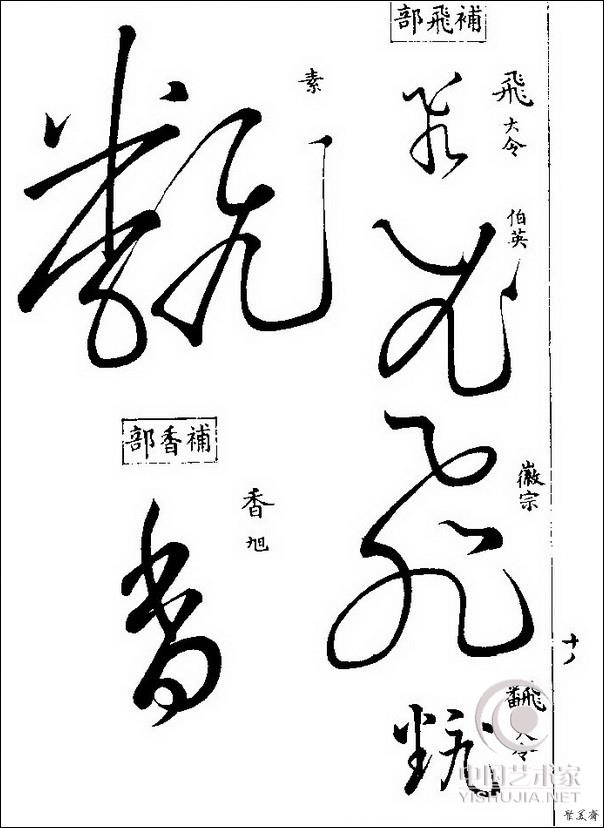 補飛部
飛 大令
飛
伯英
飛
徽宗
飛
飜 大令
飜
素
飜
補香部
香 旭
香
中国艺术家
YISHUJIA.NET